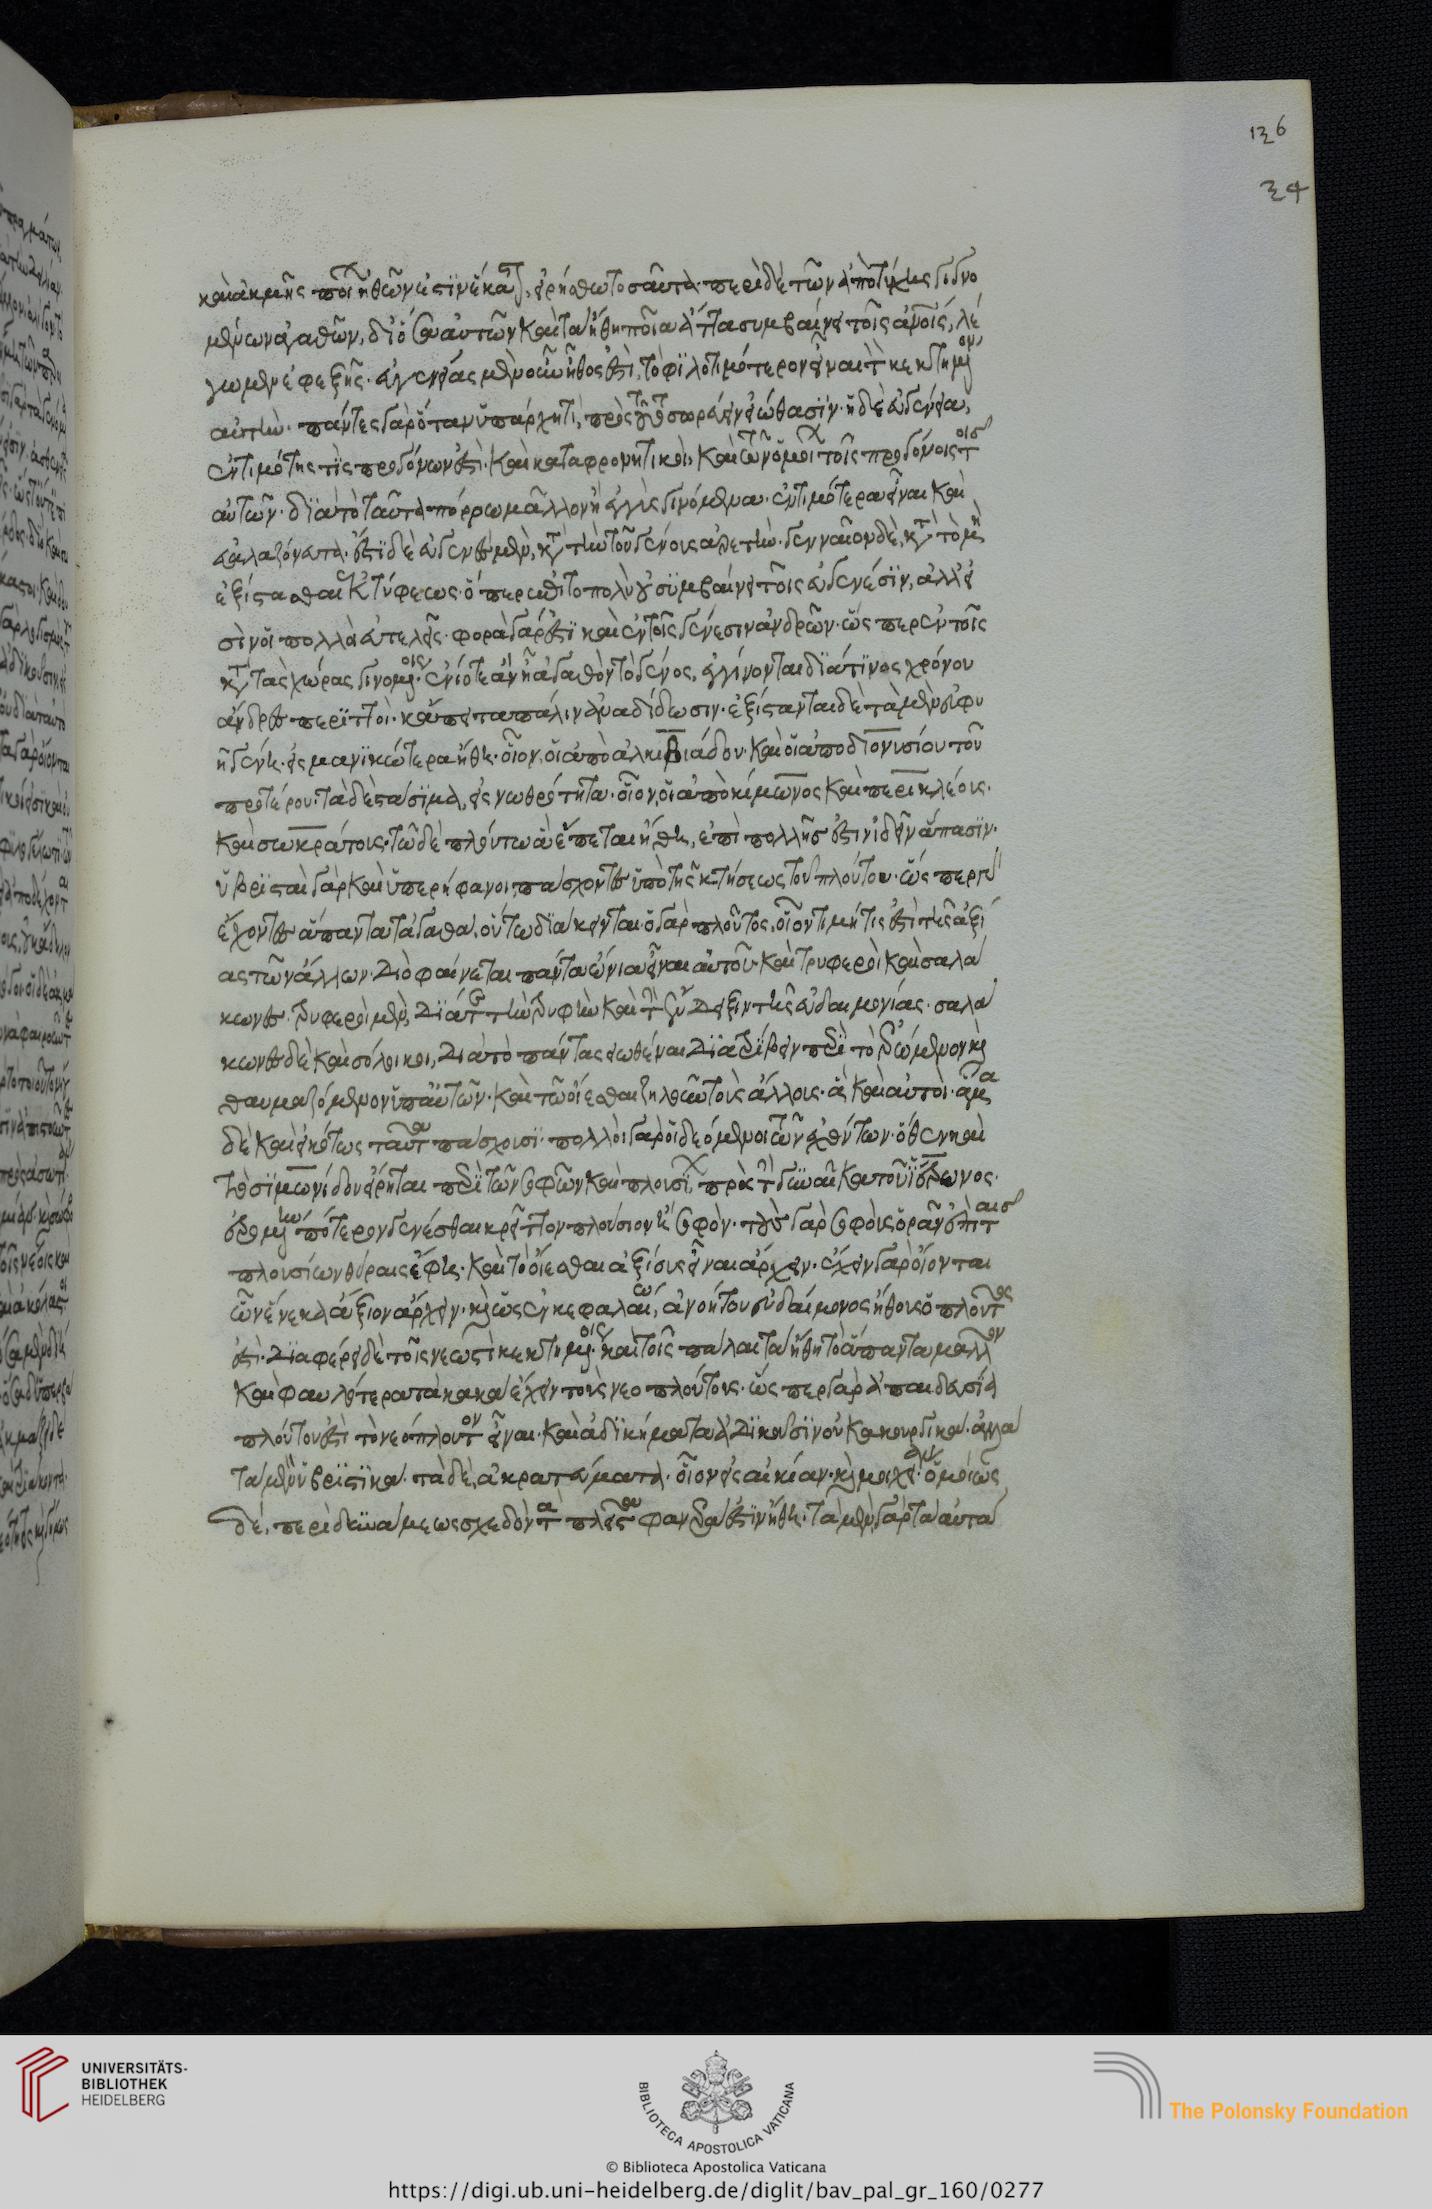 καὶ ἀκμῆς ποίων ἠθῶν ἐστὶν ἕκαστ, εἰρήσθω τοσαῦτα. περὶ δὲ τῶν ἀπὸ τύχης γιγνο
μένων ἀγαθῶν, δι' ὅσα αὐτῶν καὶ τὰ ἤθη ποῖα ἄττα συμβαίνει τοῖς ἀνοις, λέ
γωμεν ἐφεξῆς. εὐγενείας μὲν οὖν ἦθος ἐστὶ, τὸ φιλοτιμότερον εἶναι τὸν κεκτημένον
αὐτήν. πάντες γὰρ ὅταν ὑπάρχη τι, πρὸς τοῦτο σωρεύειν εἰώθασιν. ἡ δὲ εὐγένεια,
ἐντιμότης τὶς προγόνων ἐστὶ. καὶ καταφρονητικοὶ, καὶ τῶν ὁμοίων τοῖς προγόνοις τοῖς
αὐτῶν. διατὸ ταῦτα πόρρω μᾶλλον ἢ ἐγγὺς γινόμενα. ἐντιμότερα εἶναι καὶ
εὐαλαζόνευτα. ἔστι δὲ εὐγενὲς μὲν, κατὰ τὴν τοῦ γένους ἀρετήν. γενναῖον δὲ, κατὰ τὸ μὴ
ἐξίστασθαι ἐκ τ φύσεως. ὅπερ ὡς ἐπὶ τὸ πολὺ οὐ συμβαίνει τοῖς εὐγενέσιν, ἀλλ' εἰ
σὶν οἱ πολλοὶ εὐτελεῖς. φορὰ γάρ ἐστι καὶ ἐν τοῖς γένεσιν ἀνδρῶν. ὥσπερ ἐν τοῖς
κατὰ τὰς χώρας γινομένοις. ἐνίοτε ἂν ἦ ἀγαθὸν τὸ γένος, ἐγγίνονται διάτινος χρόνου
ἄνδρες περιττοί. κἄπειτα πάλιν ἀναδίδωσιν. ἐξίστανται δὲ τὰ μὲν εὐφυ
ῆ γένη. εἰς μανικώτερα ἤθη. οἷον, οἱ ἀπὸ ἀλκιβιάδου. καὶ οἱ ἀπὸ διονυσίου τοῦ
προτέρου. τὰ δὲ στάσιμα, εἰς νωθρότητα. οἷον, οἱ ἀπὸ κίμωνος καὶ περικλέους.
καὶ σωκράτους. τῶ δὲ πλούτω ἃ ἕπεται ἤθη, ἐπὶ πολλῆς ἐστὶν ἰδεῖν ἅπασιν.
ὑβρισταὶ γὰρ καὶ ὑπερήφανοι, πάσχοντες ὑπὸ τῆς κτήσεως τοῦ πλούτου. ὥσπερ γὰρ
ἔχοντες ἅπαντα τἀγαθά, οὕτω διάκεινται. ὁ γὰρ πλοῦτος, οἷον τιμή τις ἐστὶ τῆς ἀξί
ας τῶν ἄλλων. Διὸ φαίνεται πάντα ὤνια εἶναι αὐτοῦ. καὶ τρυφεροὶ καὶ σαλά
κωνες. τρυφεροὶ μὲν, Διά τε τὴν τρυφὴν καὶ τὴν ἔνδειξιν τῆς εὐδαιμονίας. σαλά
κωνες δὲ καὶ σόλοικοι, Διατὸ πάντας εἰωθέναι Διατρίβειν περὶ τὸ ἐρώμενον καὶ
θαυμαζόμενον ὑπ' αὐτῶν. καὶ τῶ οἴεσθαι ζηλοῦν τοὺς ἄλλους. ἃ καὶ αὐτοί. ἅμα
δὲ καὶ εἰκότως ταῦτα πάσχουσι. πολλοὶ γὰρ οἱ δεόμενοι τῶν ἐχόντων. ὅθεν καὶ
τὸ σιμωνίδου εἴρηται περὶ τῶν σοφῶν καὶ πλουσίων πρὸς τ γυναῖκα τοῦ ἱέρωνος.
ἐρομένην πότερον γενέσθαι κρεῖττον πλούσιον ἢ σοφόν. τοὺς γὰρ σοφοὺς ὁρᾶν ἐπὶ ταῖς
πλουσίων θύραις ἔφη. καὶ τὸ οἴεσθαι ἀξίους εἶναι ἄρχειν. ἔχειν γὰρ οἴονται
ὧν ἕνεκα ἄξιον ἄρχειν. καὶ ὡς ἐν κεφαλαίω, ἀνοήτου εὐδαίμονος ἦθος ὁ πλοῦτος
ἐστὶ. Διαφέρει δὲ τοῖς νεωστὶ κεκτημένοις καὶ τοῖς πάλαι τὰ ἤθη τὸ ἅπαντα μᾶλλον
καὶ φαυλότερα τὰ κακὰ ἔχειν τοὺς νεοπλούτους. ὥσπερ γὰρ ἀπαιδευσία
πλούτου ἐστὶ τὸ νεόπλουτον εἶναι. καὶ ἀδικήματα ἀδικοῦσιν οὐ κακουργικά. ἀλλὰ
τὰ μὲν ὑβριστικά. τὰ δὲ, ἀκρατεύματα. οἷον εἰς αἰκίαν. καὶ μοιχείαν. ὁμοίως
δὲ. περὶ δυνάμεως σχεδὸν τὰ πλεῖστα φανερά ἐστιν ἤθη. τὰ μὲν γὰρ τὰ αὐτὰ
136
34
UNIVERSITÄTS-
BIBLIOTHEK
HEIDELBERG
BIBLIOTECA APOSTOLICA VATICANA
The Polonsky Foundation
© Biblioteca Apostolica Vaticana
https://digi.ub.uni-heidelberg.de/diglit/bav_pal_gr_160/0277